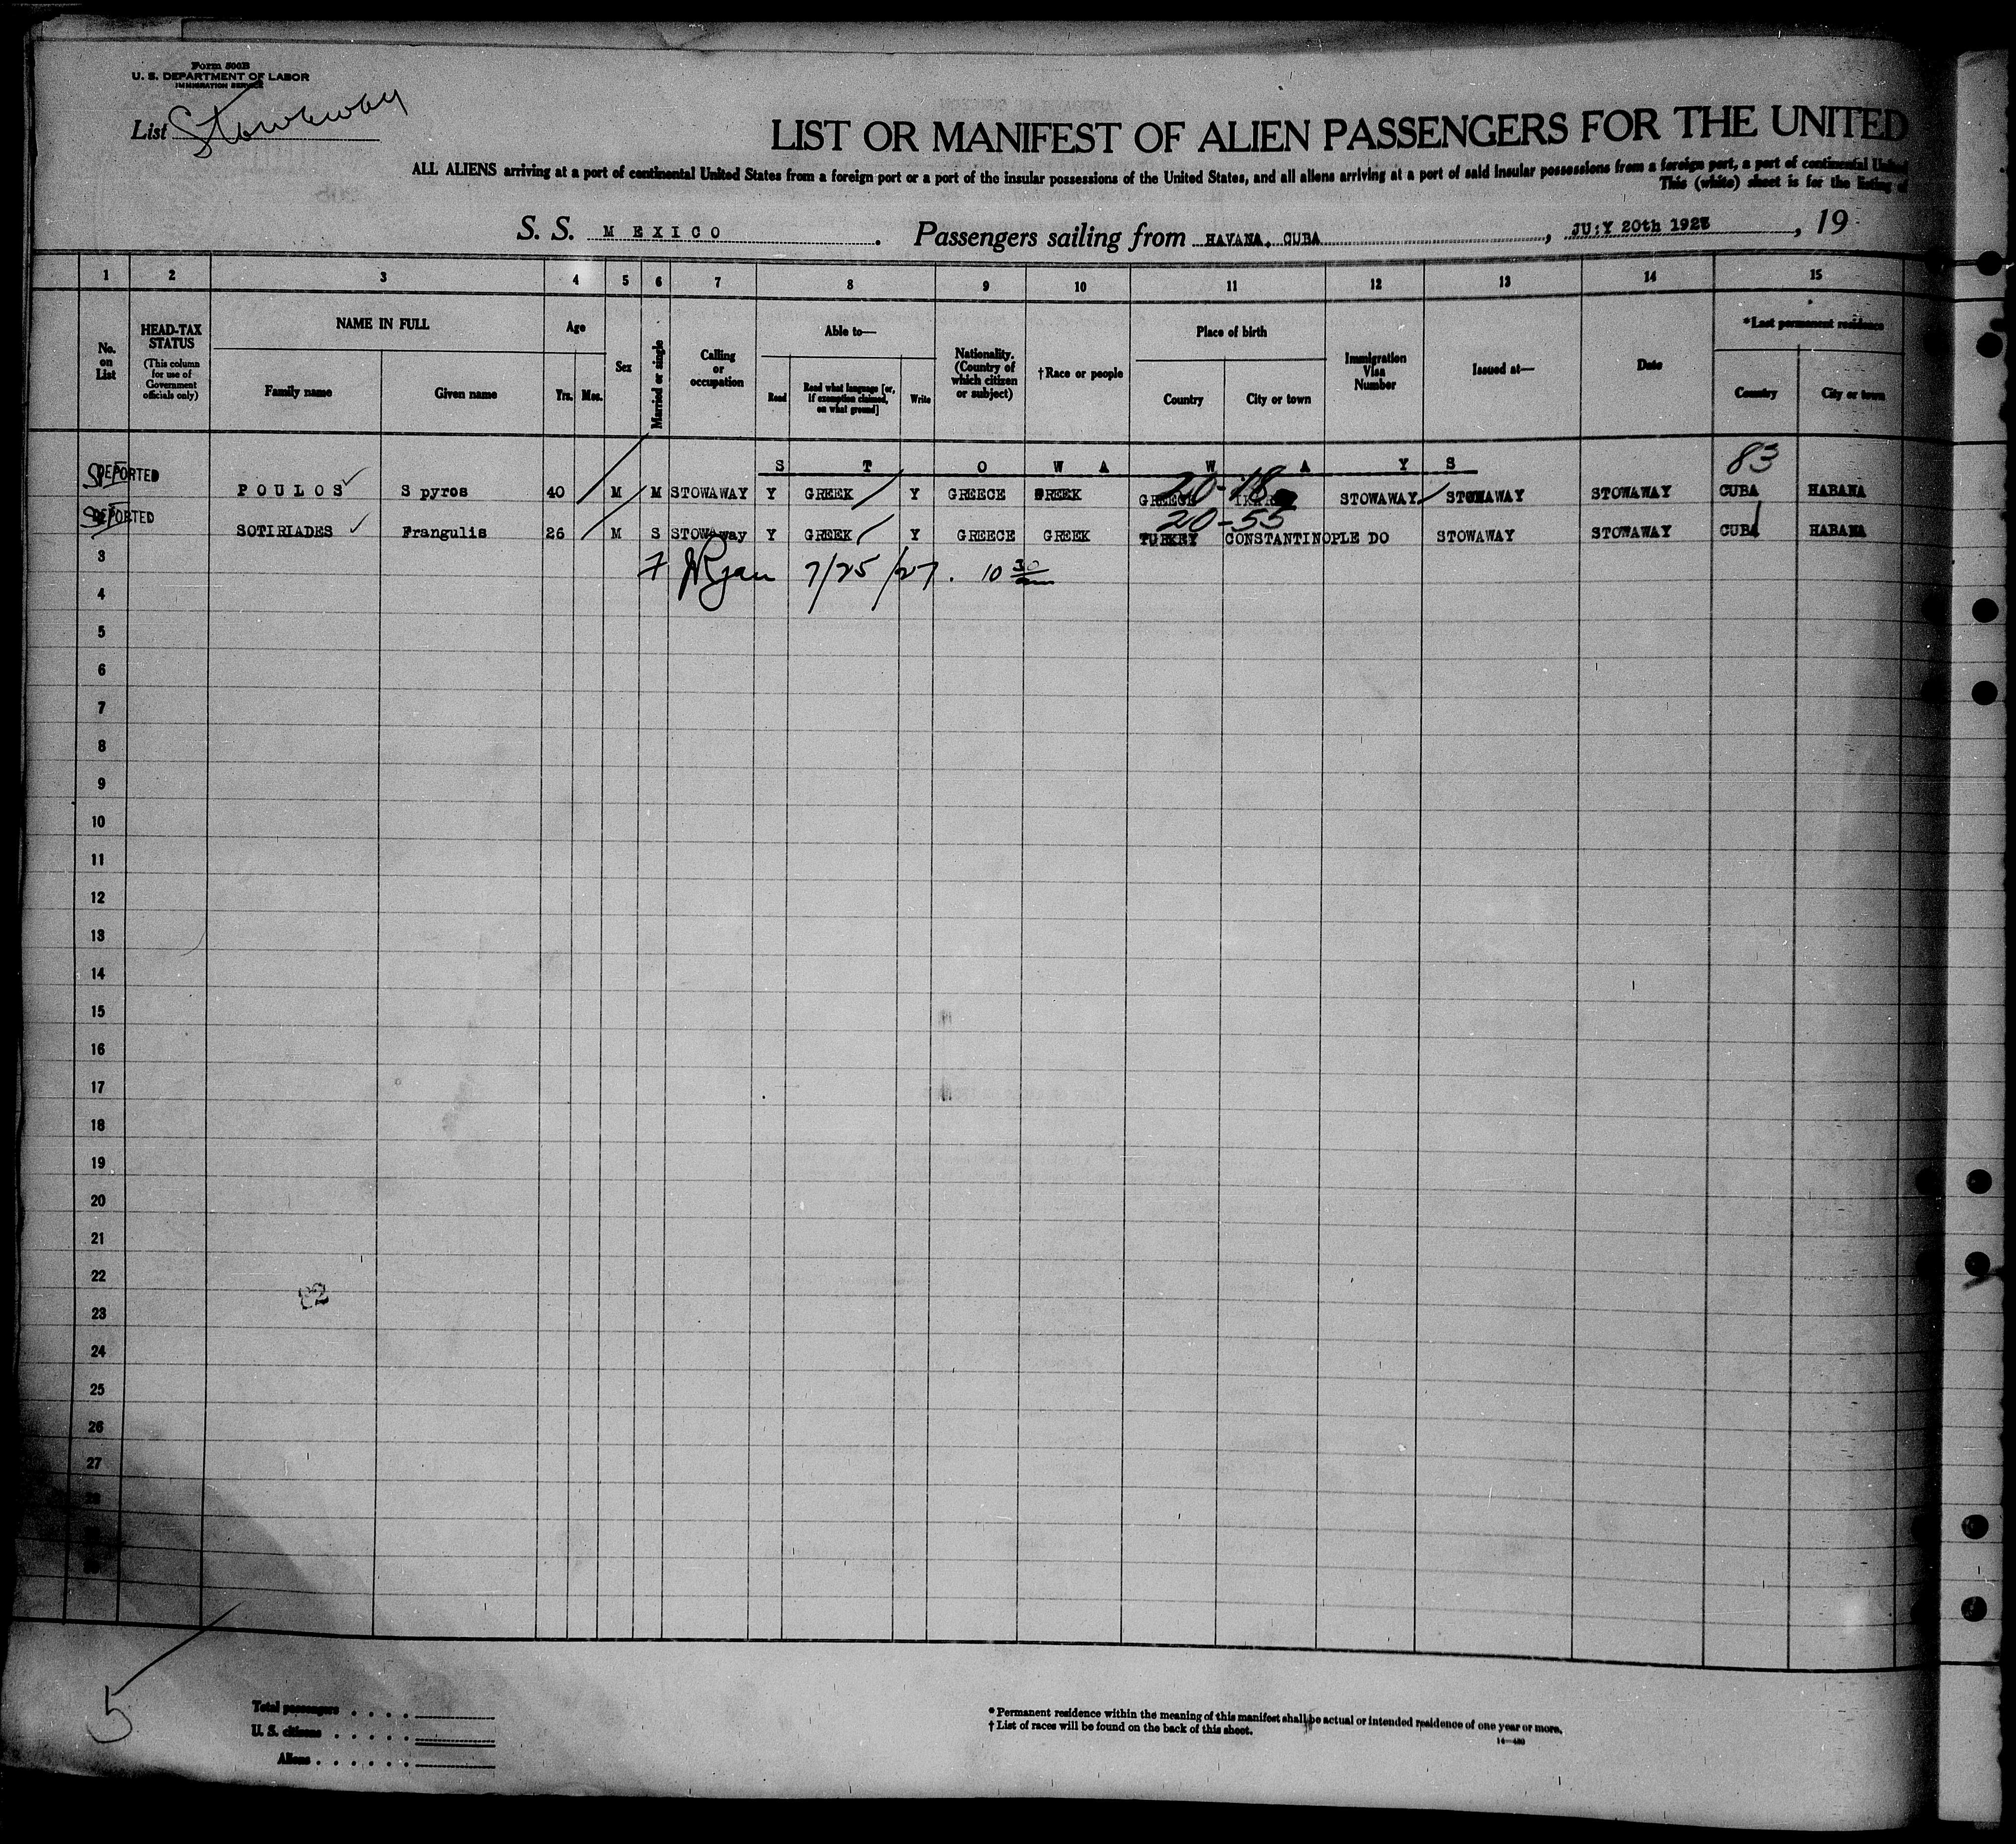 Form 500B
U. S. DEPARTMENT OF LABOR
IMMIGRATION SERVICE
List Stowaway
LIST OR MANIFEST OF ALIEN PASSENGERS FOR THE UNITED
ALL ALIENS arriving at a port of continental United States from a foreign port or a port of the insular possessions of the United States, and all aliens arriving at a port of said insular possessions from a foreign port, a port of continental United
This (white) sheet is for the listing of
S. S. MEXICO. Passengers sailing from HAVANA, CUBA, JU:Y 20th 192, 19
1 2 3 4 5 6 7 8 9 10 11 12 13 14 15
No. on List
HEAD-TAX STATUS
(This column for use of Government officials only)
NAME IN FULL
Family name
Given name
Age
Yrs. Mos.
Sex
Married or single
Calling or occupation
Able to—
Read
Read what language [or, if exemption claimed, on what ground]
Write
Nationality. (Country of which citizen or subject)
†Race or people
Place of birth
Country
City or town
Immigration Visa Number
Issued at—
Date
*Last permanent residence
Country
City or town
S T O W A W A Y S
83
DEPORTED
20-18
POULOS S pyros 40 M M STOWAWAY Y GREEK Y GREECE GREEK GREECE STOWAWAY STOWAWAY STOWAWAY CUBA HABANA
DEPORTED
20-55
SOTIRIADES Frangulis 26 M S STOWAway Y GREEK Y GREECE GREEK TURKEY CONSTANTINOPLE DO STOWAWAY STOWAWAY CUBA HABANA
3
Ryan 7/25/27. 10 30 am
4
5
6
7
8
9
10
11
12
13
14
15
16
17
18
19
20
21
22
82
23
24
25
26
27
28
5
Total passengers
U. S. citizens
Aliens
* Permanent residence within the meaning of this manifest shall be actual or intended residence of one year or more.
† List of races will be found on the back of this sheet.
14—480